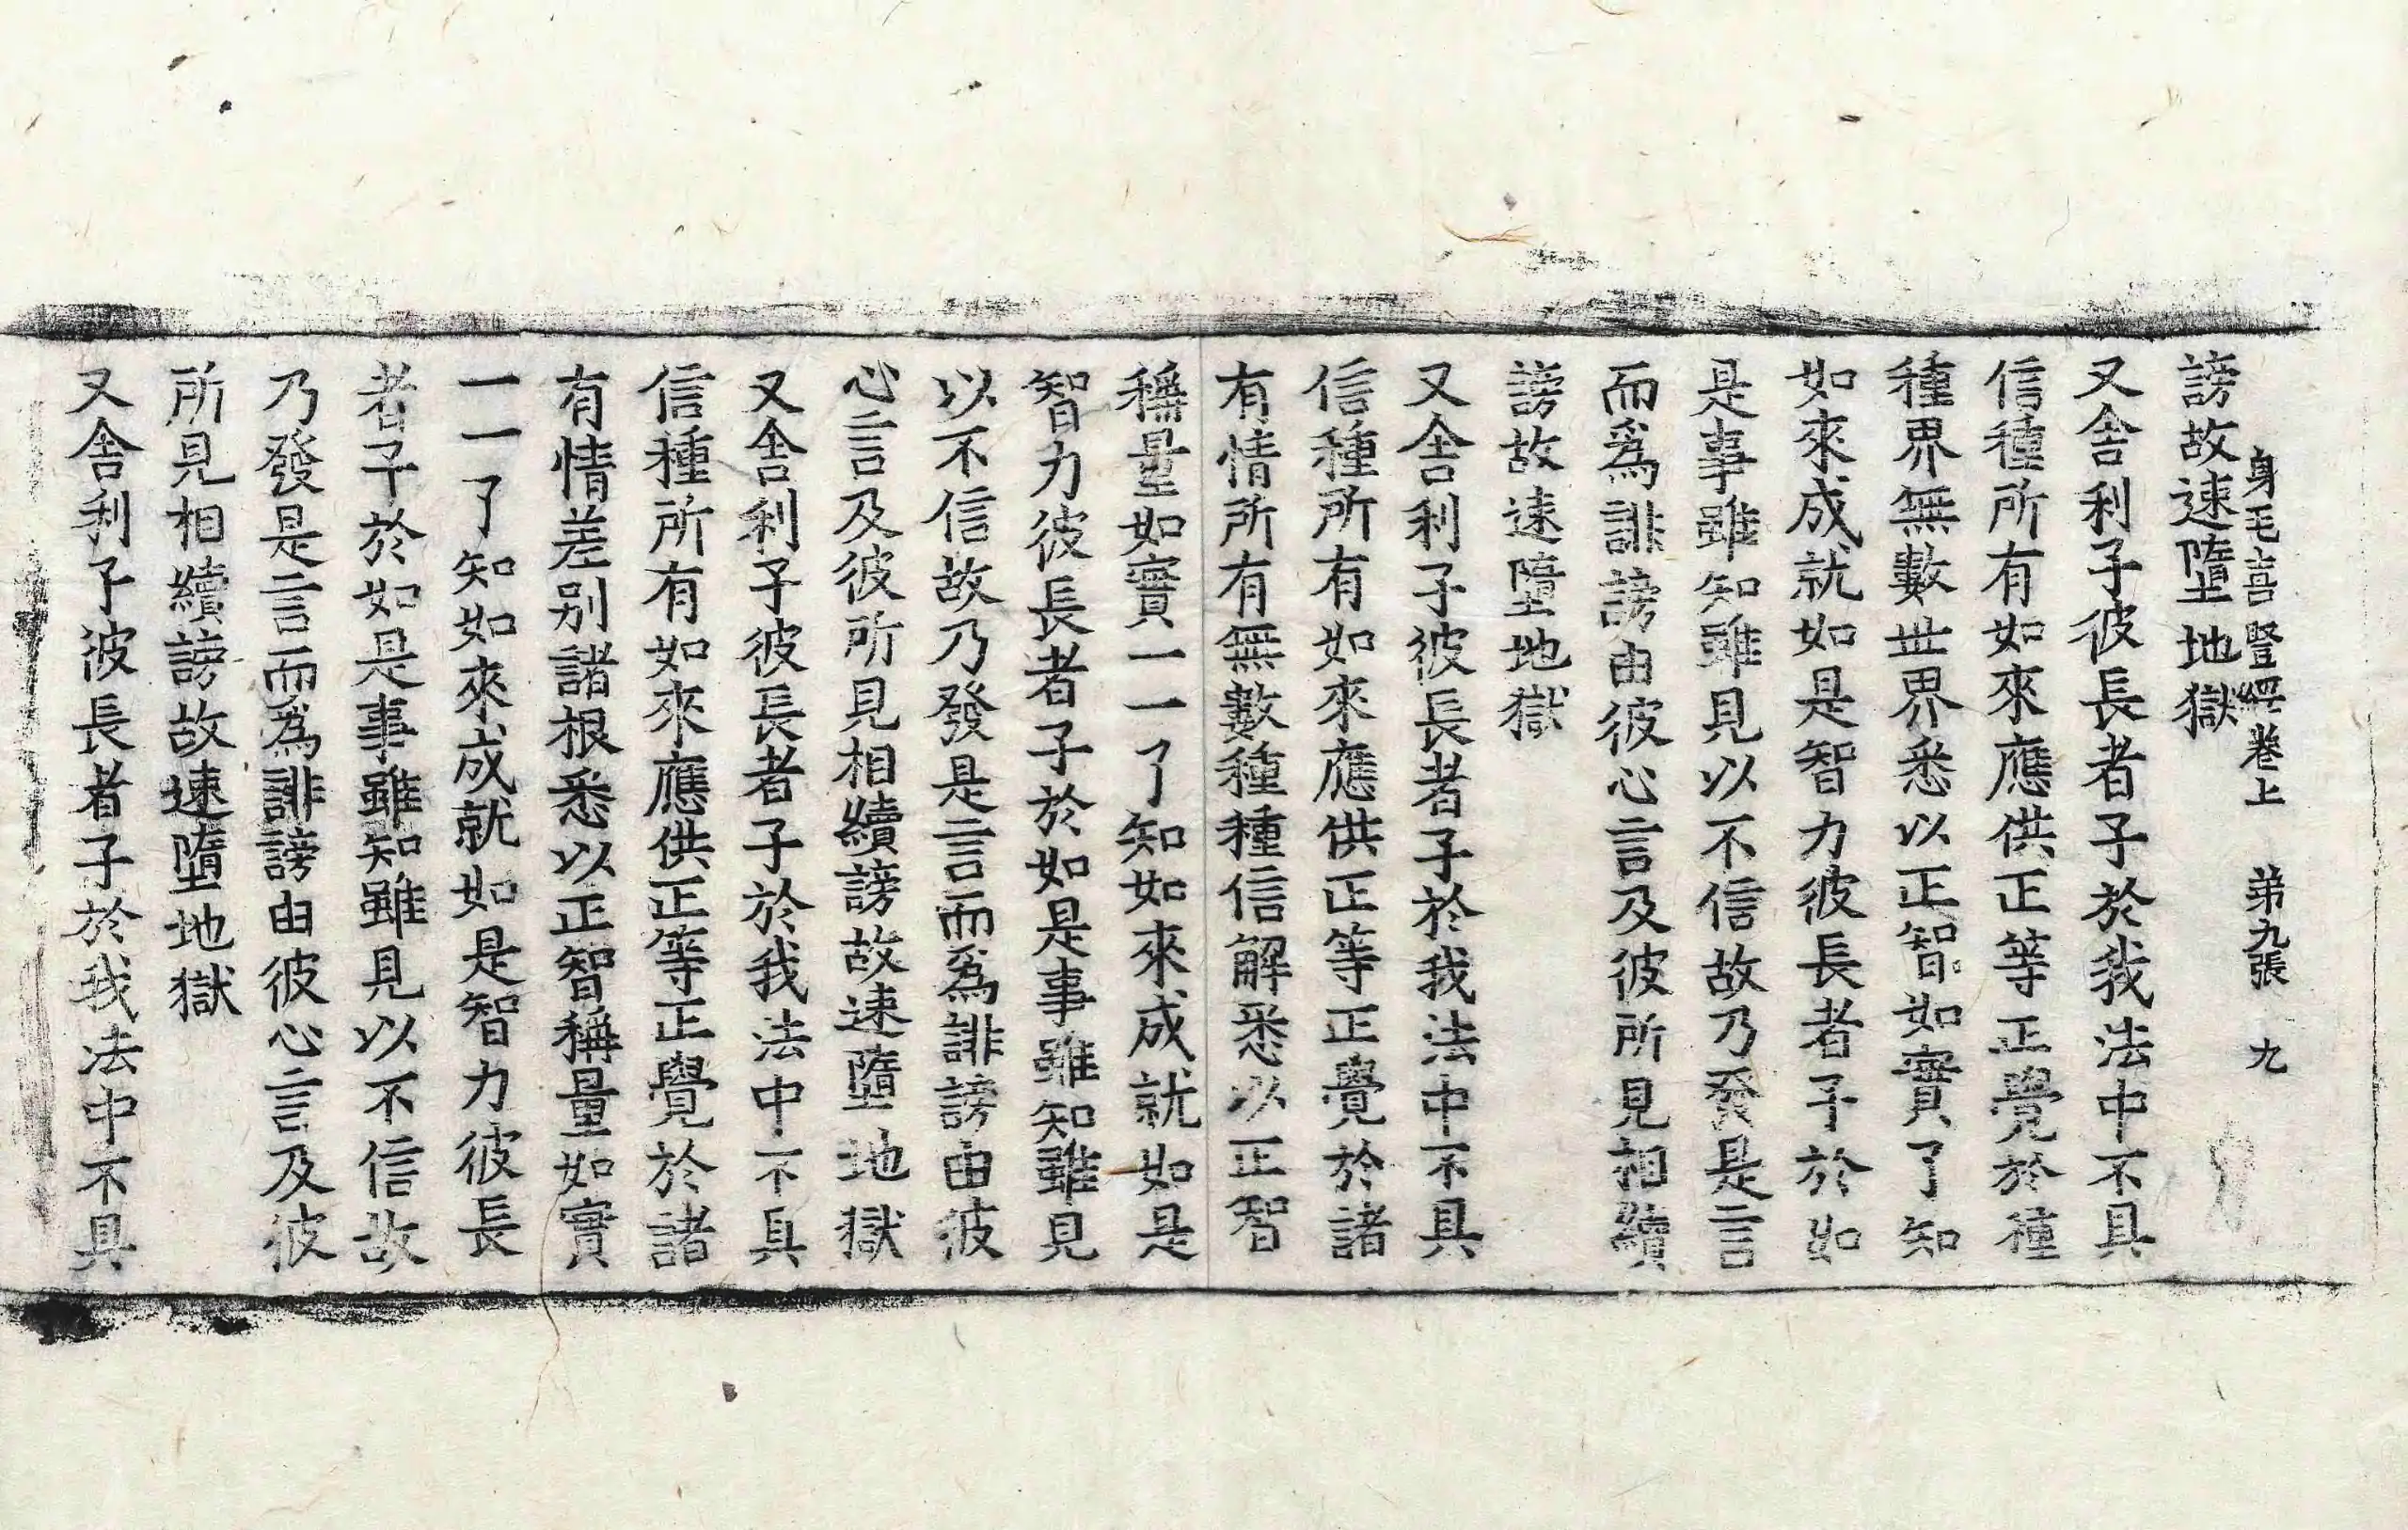 身毛喜竪經卷上 第九張 九
謗故速墮地獄
又舍利子彼長者子於我法中不具
信種所有如來應供正等正覺於種
種界無數世界悉以正智如實了知
如來成就如是智力彼長者子於如
是事雖知雖見以不信故乃發是言
而爲誹謗由彼心言及彼所見相續
謗故速墮地獄
又舍利子彼長者子於我法中不具
信種所有如來應供正等正覺於諸
有情所有無數種種信解悉以正智
稱量如實一一了知如來成就如是
智力彼長者子於如是事雖知雖見
以不信故乃發是言而爲誹謗由彼
心言及彼所見相續謗故速墮地獄
又舍利子彼長者子於我法中不具
信種所有如來應供正等正覺於諸
有情差別諸根悉以正智稱量如實
一一了知如來成就如是智力彼長
者子於如是事雖知雖見以不信故
乃發是言而爲誹謗由彼心言及彼
所見相續謗故速墮地獄
又舍利子彼長者子於我法中不具